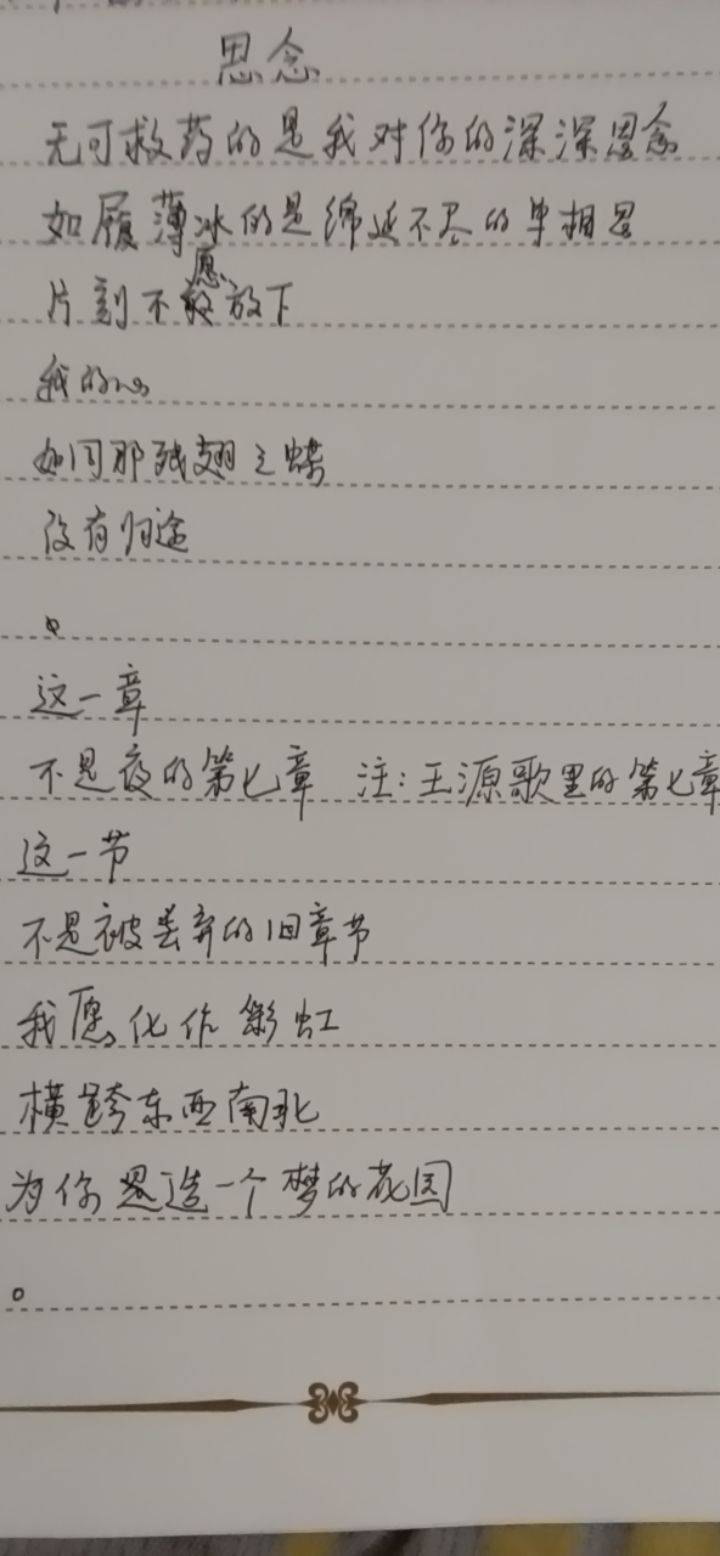 思念
无可救药的是我对你的深深思念
如履薄冰的是绵延不尽的单相思
片刻不愿放下
我的心
如同那残翅之蝶
没有归途
。
这一章
不是夜的第七章 注：王源歌里的第七章
这一节
不是被丢弃的旧章节
我愿化作彩虹
横跨东西南北
为你思造一个梦的花园
。